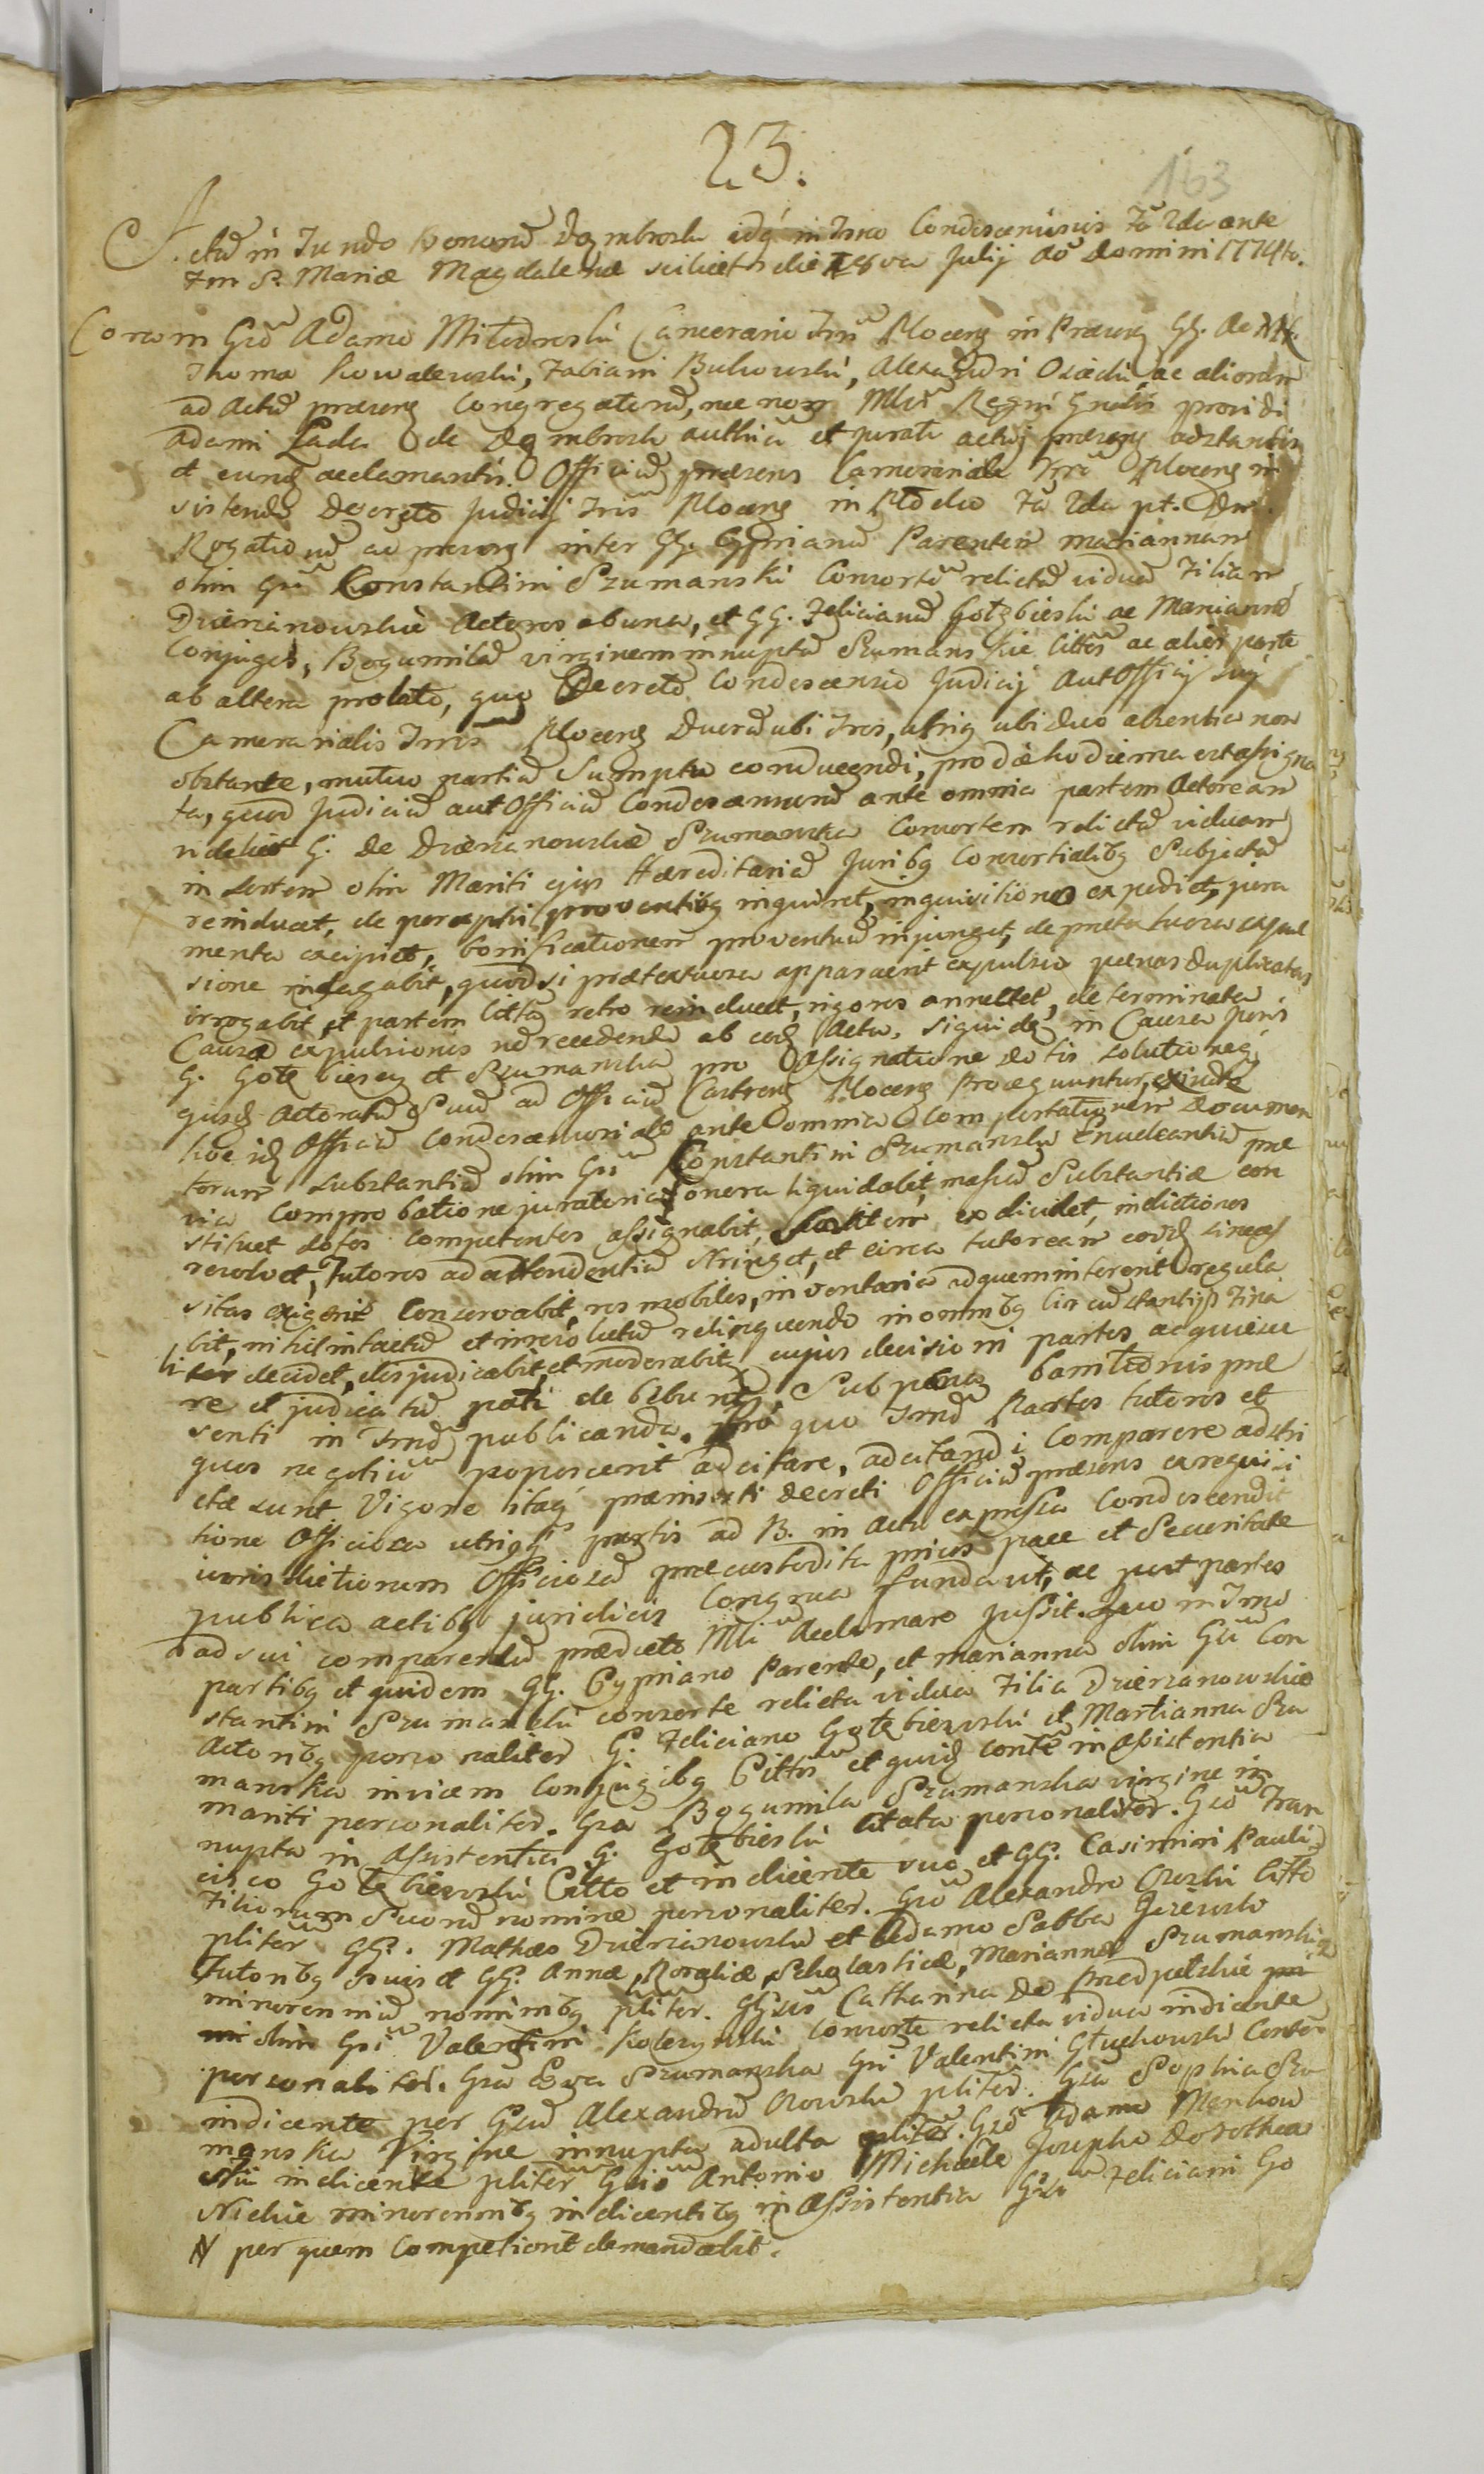 23.
163
Actū in Fundo Bonorū Dąmbrosk idq́ in Trno Condescensus Fa 2da ante
Ftm S. Mariæ Magdalenæ scilicet die 18va Julij Ao Domini 1774to.
Coram Gſo Adamo Miłodroski Camerario Trrῖ Plocenꝫ in Præsenꝫ GG. ac
Thoma Kowalewski, Fabiani Bukowski, Alexandri Osiecki, ac aliorum
ad Actū præsenꝫ Congregatorū, nec non Mlῖs Regni Gnalis providi
Adami Łada de Dąmbrosk authici et jurati actuj præsenꝫ adstantis
et eundꝫ acclamantis. Officiū præsens Camerariale Trrῖ Plocenꝫ in
sistendo Decreto Judicij Trris Plocenꝫ in Płocko Fa 2da pt. Dn̄
Rogationū ac præsenꝫ inter GG. Cyprianū Parentem Mariannam
olim Gſi Constantini Szumanski Consortē relictā viduā Filiam
Dzierzanowskie Actores ab una, et GG. Felicianū Gołębieski ac Mariannā
Conjuges, Bogumiłā virginem innuptā Szumanskie Cittos ac alios parte
ab altera prolato, quo Decreto Condescensio Judicij aut Officij sui
Camerarialis Trris Plocenꝫ Duorū ubi Tres, utriq ubi duo absentia non
obstante, mutuo partiū Sumptu conducendi, pro die hodierna est assigna
ta, quod Judiciū aut Officiū Condescensorū ante omnia partem Actoream
videlicet G. de Dzierzanowskie Szumanska Consortem relictā viduam
in sortem olim Mariti ejus Hæreditariā Juribꝫ Consortialibꝫ Subjectā
reinducet, de perceptis proventibꝫ inquiret, inquisitiones expediet, jura
menta excipiet, bonificationem proventuū injunget, de prætextuosa expul
sione indagabit, quod si prætextuosa apparuerit expulsio pœnas duplicatas
irrogabit, et partem Citta retro reinducet, rigores annectet, determinata
Causa expulsionis nō recedendo ab eodꝫ Actu. Siquidꝫ in Causa ptis
G. Gołębieskiey et Szumanska pro assignatione dotis solutioneq́
ejusdꝫ Actoratū Suū ad Officiū Castrenꝫ Plocenꝫ Prosequuntur,
hoc idꝫ Officiū Condescensoriale ante omnia Comportationem documen
torum substantiā olim Gſi Constantini Szumanski Enucleantiū præ
via Comprobatione juratoria, onera liquidabit, massā Substantiæ con
stituet dotes competentes assignabit, Sortem exdividet, indictiones
resolvet, Tutores ad attendentiā stringet, et circa tutoream eosdꝫ si neces
sitas exigerit Conservabit, res mobiles, inventaria ad quem interent regula
bit, nihil intactū et irresolutū relinquendo in omnibꝫ circumstantijs Fina
liter decidet, disjudicabit, et moderabit N cujus decisioni partes acquiesce
re et judicatū pati debebunt Sub pœna banitionis præ
senti in Trno publicanda. Pro quo Trno Partes tutores et
quos negotiū poposcerit adcitare, adcitandi Comparere adstri
ctæ sunt. Vigore itaq́ præinserti Decreti Officiū præsens ex requisi
tione Officiosa utriusq́ partis ad B. in Actu expressa Condescendit
iurisdictionem Officiosā præcustodita prius pace et Securitate
publica actibꝫ juridicis Congrua fundavit, ac post partes
ad sui comparendū prædicto Mli Acclamare Jussit. Quo in Trno
partibꝫ et quidem GG. Cypriano Parente, et Marianna olim Gſi Con
stantini Szumanski consorte relicta vidua Filia Dzierzanowskie
Actoribꝫ personaliter G. Feliciano Gołębiewski et Marianna Szu
manska invicem Conjugibꝫ Cittis et quidꝫ conte in assistentia
mariti personaliter. Gsa Bogumiła Szumanska virgine in
nupta in Assistentia G. Gołębieski citata personaliter. Gſo Fran
cisco Gołębiewski Citto et indicente suo et GG. Casimiri Pauli
Filiorum Suorū nomine personaliter. Gſo Alexandro Ososki Citto
pliter GG. Mathæo Dzierzanowski et Adamo Sabba Jeżewski
Tutoribꝫ Suis et GG. Annæ, Rosaliæ, Scholasticæ, Mariannæ Szumanskie
minorenniū nominibꝫ pliter. Gſsa Catharina de Prędpełskie
olim Gſi Valentini Kolczynski Consorte relicta vidua indicente
personaliter. Gsa Ewa Szumanska Gſi Valentini Głuchowski Conte
indicente per Gſū Alexandrū Osowski pliter. Gsa Sophia Szu
manska Virgine innupta adulta pliter. Gſo Adamo Mankow
ski indicente pliter Gſis Antonio Michæle Josepho Dorothea
Nickie minorennibꝫ indicentibꝫ in Assistentia Gſi Feliciani Go
N per quem Competierit demandabit.